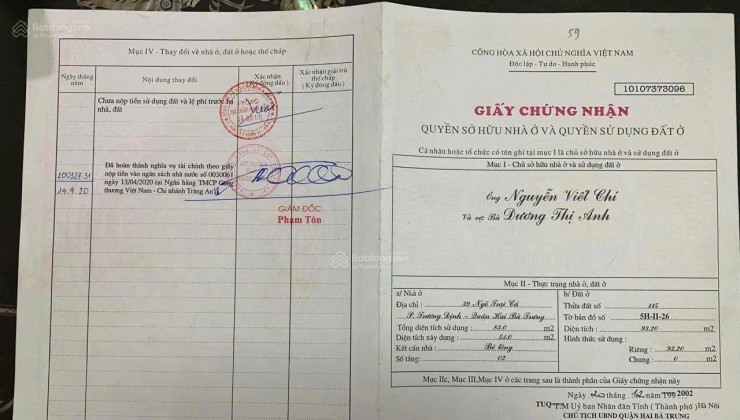 Mục IV - Thay đổi về nhà ở, đất ở hoặc thế chấp
Ngày tháng năm
Nội dung thay đổi
Xác nhận
(Ký đóng dấu)
Xác nhận giải trừ thế chấp
( Ký đóng dấu)
Chưa nộp tiền sử dụng đất và lệ phí trước bạ
nhà, đất
200327-31
14.4.20
Đã hoàn thành nghĩa vụ tài chính theo giấy
nộp tiền vào ngân sách nhà nước số 0030061
ngày 13/04/2020 tại Ngân hàng TMCP Công
thương Việt Nam - Chi nhánh Tràng An
GIÁM ĐỐC
Phạm Tôn
Batdongsan
59
CỘNG HÒA XÃ HỘI CHỦ NGHĨA VIỆT NAM
Độc lập - Tự do - Hạnh phúc
10107373096
GIẤY CHỨNG NHẬN
QUYỀN SỞ HỮU NHÀ Ở VÀ QUYỀN SỬ DỤNG ĐẤT Ở
Cá nhân hoặc tổ chức có tên ghi tại mục I là chủ sở hữu nhà ở và sử dụng đất ở
Mục I - Chủ sở hữu nhà ở và sử dụng đất ở
Ông Nguyễn Viết Chí
Và vợ Bà Dương Thị Anh
Mục II - Thực trạng nhà ở, đất ở
a/ Nhà ở
Địa chỉ : 39 Ngõ Trại Cá
P. Trương Định - Quận Hai Bà Trưng
Tổng diện tích sử dụng : 83.0 m2
Diện tích xây dựng : 51.0 m2
Kết cấu nhà : Bê tông
Số tầng : 02
b/ Đất ở
Thửa đất số 115
Tờ bản đồ số 5H-II-26
Diện tích : 93.20 m2
Hình thức sử dụng :
Riêng : 93.20 m2
Chung : 0 m2
Mục IIc, Mục III, Mục IV ở các trang sau là thành phần của Giấy chứng nhận này
Ngày 20 tháng 12 2002
TUQ T.M Uỷ ban Nhân dân Tỉnh ( Thành phố ) Hà Nội
CHỦ TỊCH UBND QUẬN HAI BÀ TRƯNG